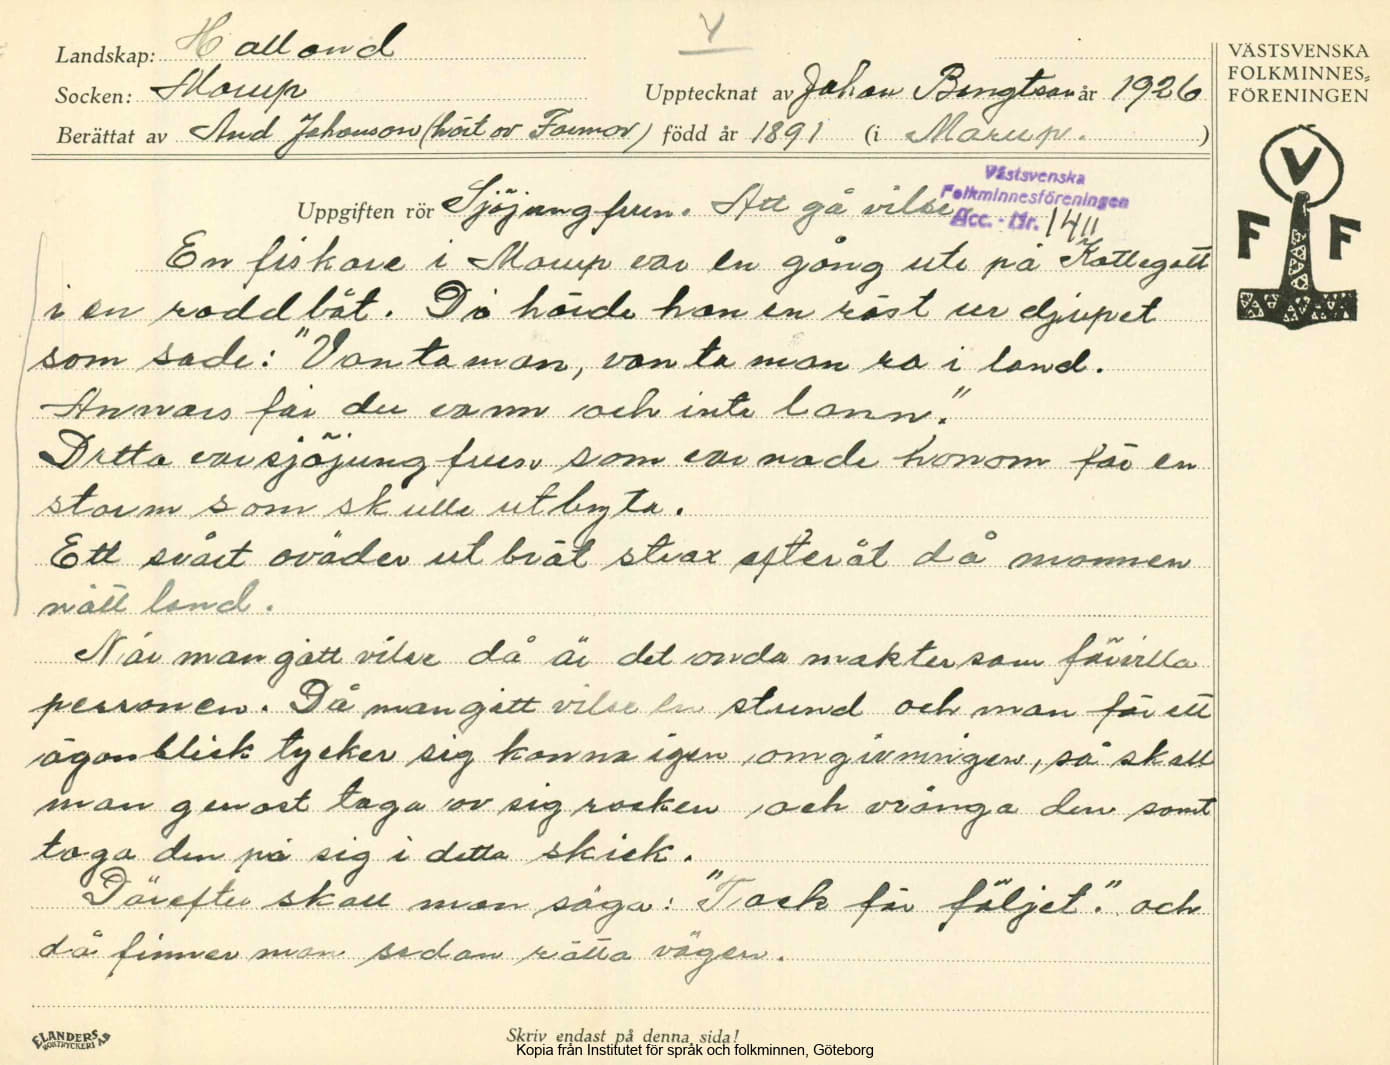 V
Landskap: Halland
Socken: Morup
Upptecknat av Johan Bengtson år 1926
Berättat av And Johanson (hört av Farmor) född år 1891 (i Morup. )
VÄSTSVENSKA
FOLKMINNES=
FÖRENINGEN
V
F F
Västsvenska
Folkminnesföreningen
Acc. - Nr. 1411
Uppgiften rör Sjöjungfrun. Att gå vilse
En fiskare i Morup var en gång ute på Kattegatt
i en roddbåt. Då hörde han en röst ur djupet
som sade: "Vantaman, vanta man ro i land.
Annars får du vann och inte lann."
Detta var sjöjungfrun som varnade honom för en
storm som skulle utbryta.
Ett svårt oväder utbröt strax efteråt då mannen
nått land.
När man gått vilse då är det onda makter som förvilla
personen. Då man gått vilse en stund och man för ett
ögonblick tycker sig kanna igen omgivningen, så skall
man genast taga av sig rocken och vränga den samt
taga den på sig i detta skick.
Därefter skall man säga: "Tack för följet." och
då finner man sedan rätta vägen.
ELANDERS
BOKTRYCKERI AB
Skriv endast på denna sida!
Kopia från Institutet för språk och folkminnen, Göteborg